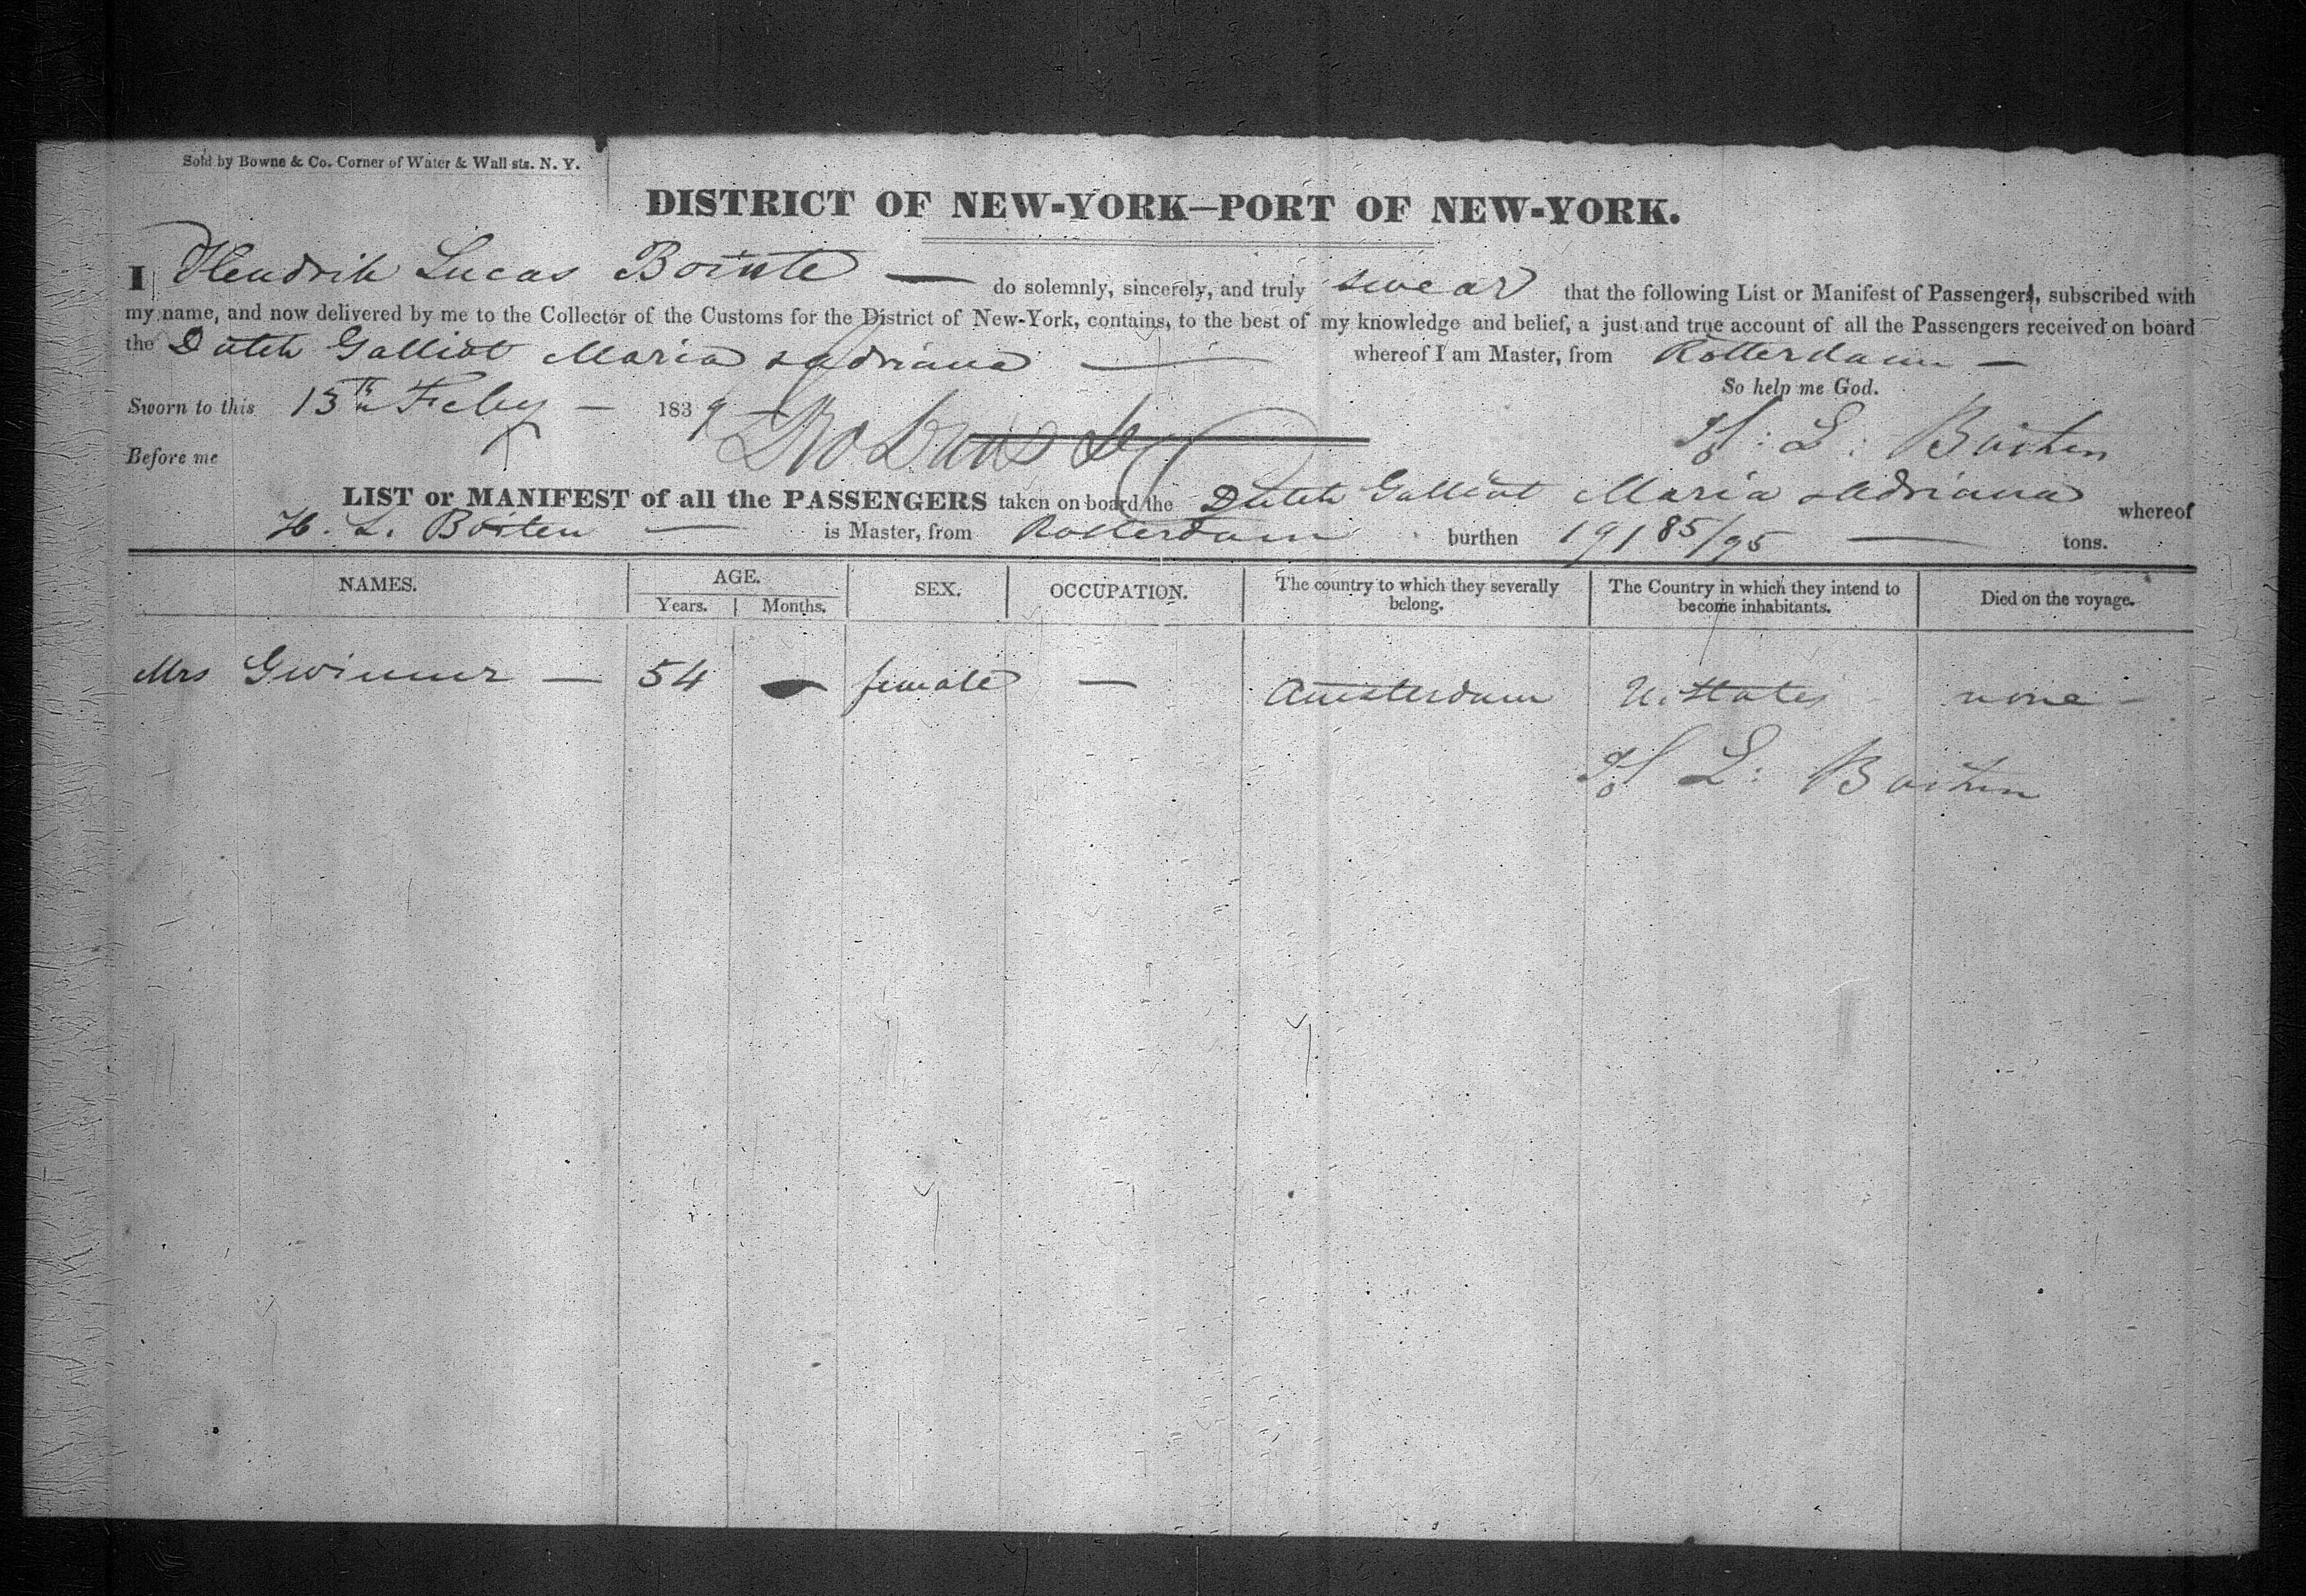 Sold by Bowne & Co. Corner of Water & Wall sts. N. Y.
DISTRICT OF NEW-YORK—PORT OF NEW-YORK.
I Hendrik Lucas — do solemnly, sincerely, and truly swear that the following List or Manifest of Passengers, subscribed with
my name, and now delivered by me to the Collector of the Customs for the District of New-York, contains, to the best of my knowledge and belief, a just and true account of all the Passengers received on board
the Dutch Galliot Maria Adriana — whereof I am Master, from Rotterdam —
So help me God.
Sworn to this 15th Feby — 1839
H: L: Böiten
Before me
LIST or MANIFEST of all the PASSENGERS taken on board the Dutch Galliot Maria Adriana whereof
H. L. Boiten — is Master, from Rotterdam burthen 191 85/95 — tons.
NAMES. AGE. SEX. OCCUPATION. The country to which they severally belong. The Country in which they intend to become inhabitants. Died on the voyage.
Years. Months.
Mrs Gwinner — 54 — female — Amsterdam U. States none —
H L: Boiten